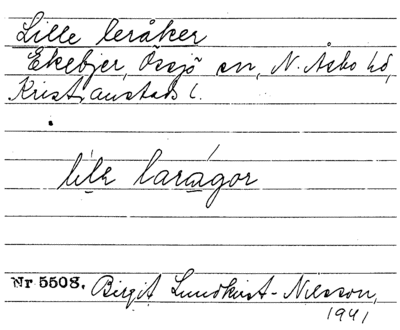 Lille leråker
Ekebjer, Össjö sn, N. Åsbo hd,
Kristianstads l.
lile laragor
Nr 5508. Birgit Lundkvist-Nilsson,
1941